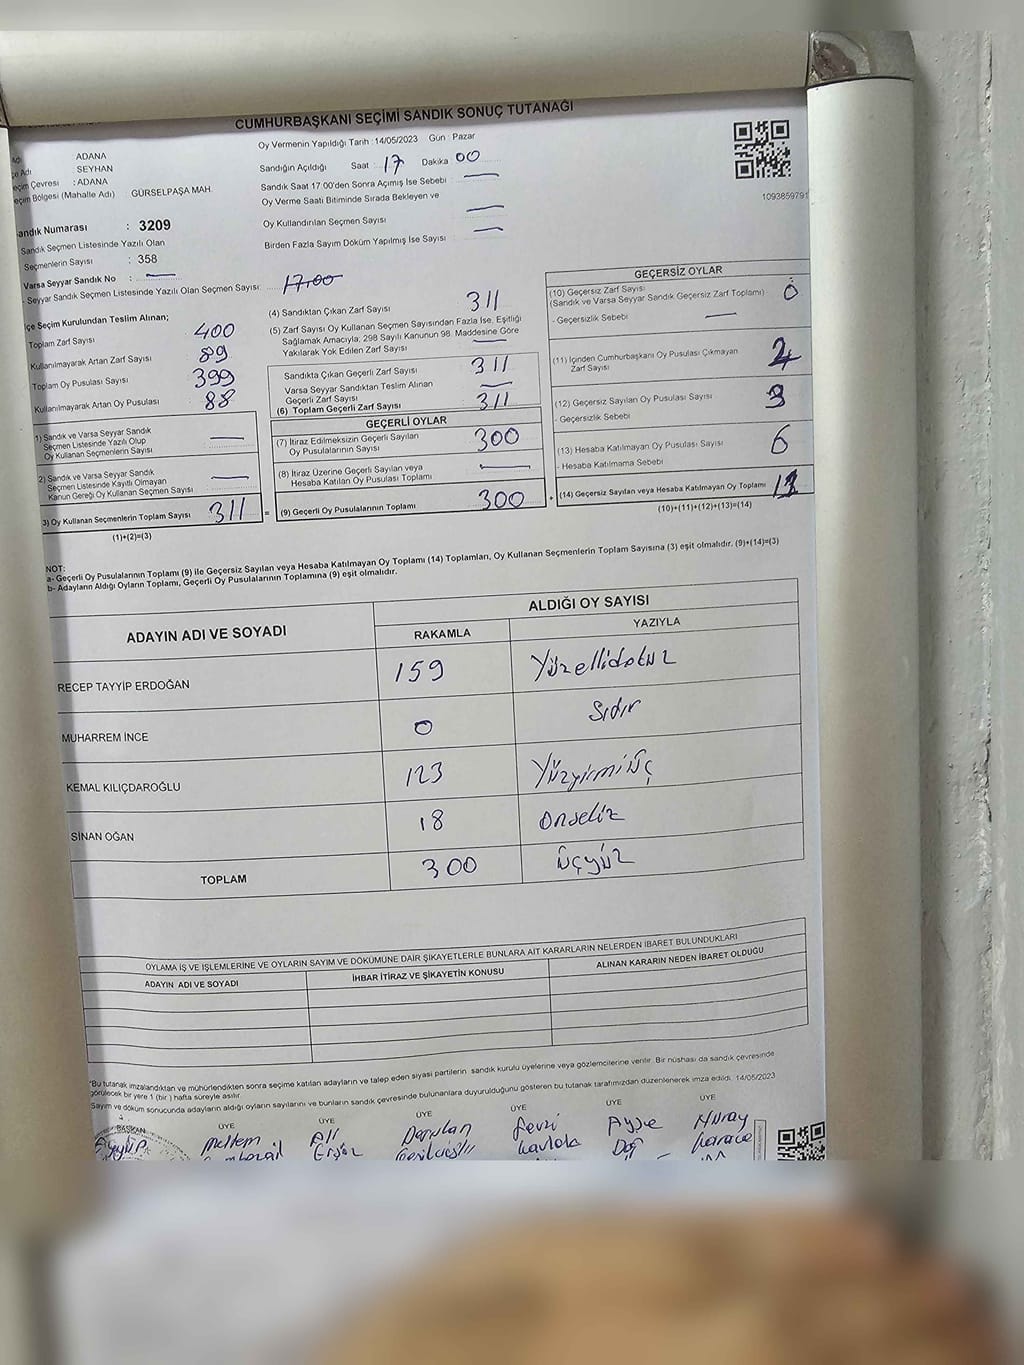 CUMHURBAŞKANI SEÇİMİ SANDIK SONUÇ TUTANAĞI
ADANA
SEYHAN
Çevresi : ADANA
Bölgesi (Mahalle Adı) GÜRSELPAŞA MAH.
Sandık Numarası : 3209
Sandık Seçmen Listesinde Yazılı Olan
Seçmenlerin Sayısı : 358
Varsa Seyyar Sandık No : —
- Seyyar Sandık Seçmen Listesinde Yazılı Olan Seçmen Sayısı: 17:00
Oy Vermenin Yapıldığı Tarih : 14/05/2023 Gün : Pazar
Sandığın Açıldığı Saat : 17 Dakika 00
Sandık Saat 17:00'den Sonra Açımış İse Sebebi : —
Oy Verme Saati Bitiminde Sırada Bekleyen ve
Oy Kullandırılan Seçmen Sayısı : —
Birden Fazla Sayım Döküm Yapılmış İse Sayısı : —
1093859791
İlçe Seçim Kurulundan Teslim Alınan;
Toplam Zarf Sayısı 400
Kullanılmayarak Artan Zarf Sayısı 89
Toplam Oy Pusulası Sayısı 399
Kullanılmayarak Artan Oy Pusulası 88
1) Sandık ve Varsa Seyyar Sandık
Seçmen Listesinde Yazılı Olup
Oy Kullanan Seçmenlerin Sayısı —
2) Sandık ve Varsa Seyyar Sandık
Seçmen Listesinde Kayıtlı Olmayan
Kanun Gereği Oy Kullanan Seçmen Sayısı —
3) Oy Kullanan Seçmenlerin Toplam Sayısı 311 =
(1)+(2)=(3)
(4) Sandıktan Çıkan Zarf Sayısı 311
(5) Zarf Sayısı Oy Kullanan Seçmen Sayısından Fazla İse, Eşitliği
Sağlamak Amacıyla, 298 Sayılı Kanunun 98. Maddesine Göre
Yakılarak Yok Edilen Zarf Sayısı —
Sandıkta Çıkan Geçerli Zarf Sayısı 311
Varsa Seyyar Sandıktan Teslim Alınan
Geçerli Zarf Sayısı —
(6) Toplam Geçerli Zarf Sayısı 311
GEÇERLİ OYLAR
(7) İtiraz Edilmeksizin Geçerli Sayılan
Oy Pusulalarının Sayısı 300
(8) İtiraz Üzerine Geçerli Sayılan veya
Hesaba Katılan Oy Pusulası Toplamı —
(9) Geçerli Oy Pusulalarının Toplamı 300 +
GEÇERSİZ OYLAR
(10) Geçersiz Zarf Sayısı
(Sandık ve Varsa Seyyar Sandık Geçersiz Zarf Toplamı) 0
- Geçersizlik Sebebi —
(11) İçinden Cumhurbaşkanı Oy Pusulası Çıkmayan
Zarf Sayısı 2
(12) Geçersiz Sayılan Oy Pusulası Sayısı 3
- Geçersizlik Sebebi
(13) Hesaba Katılmayan Oy Pusulası Sayısı 6
- Hesaba Katılmama Sebebi
(14) Geçersiz Sayılan veya Hesaba Katılmayan Oy Toplamı
(10)+(11)+(12)+(13)=(14)
NOT:
a- Geçerli Oy Pusulalarının Toplamı (9) ile Geçersiz Sayılan veya Hesaba Katılmayan Oy Toplamı (14) Toplamları, Oy Kullanan Seçmenlerin Toplam Sayısına (3) eşit olmalıdır. (9)+(14)=(3)
b- Adayların Aldığı Oyların Toplamı, Geçerli Oy Pusulalarının Toplamına (9) eşit olmalıdır.
ADAYIN ADI VE SOYADI ALDIĞI OY SAYISI
RAKAMLA YAZIYLA
RECEP TAYYİP ERDOĞAN 159 Yüzellidokuz
MUHARREM İNCE 0 Sıdır
KEMAL KILIÇDAROĞLU 123 Yüzyirmiüç
SİNAN OĞAN 18 onsekiz
TOPLAM 300 üçyüz
OYLAMA İŞ VE İŞLEMLERİNE VE OYLARIN SAYIM VE DÖKÜMÜNE DAİR ŞİKAYETLERLE BUNLARA AİT KARARLARIN NELERDEN İBARET BULUNDUKLARI
ADAYIN ADI VE SOYADI İHBAR İTİRAZ VE ŞİKAYETİN KONUSU ALINAN KARARIN NEDEN İBARET OLDUĞU
*Bu tutanak imzalandıktan ve mühürlendikten sonra seçime katılan adayların ve talep eden siyasi partilerin sandık kurulu üyelerine veya gözlemcilerine verilir. Bir nüshası da sandık çevresinde
görülecek bir yere 1 (bir) hafta süreyle asılır.
Sayım ve döküm sonucunda adayların aldığı oyların sayılarını ve bunların sandık çevresinde bulunanlara duyurulduğunu gösteren bu tutanak tarafımızdan düzenlenerek imza edildi. 14/05/2023
BAŞKAN ÜYE ÜYE ÜYE ÜYE ÜYE ÜYE
Meltem Ali Fevzi Ayşe Nuray